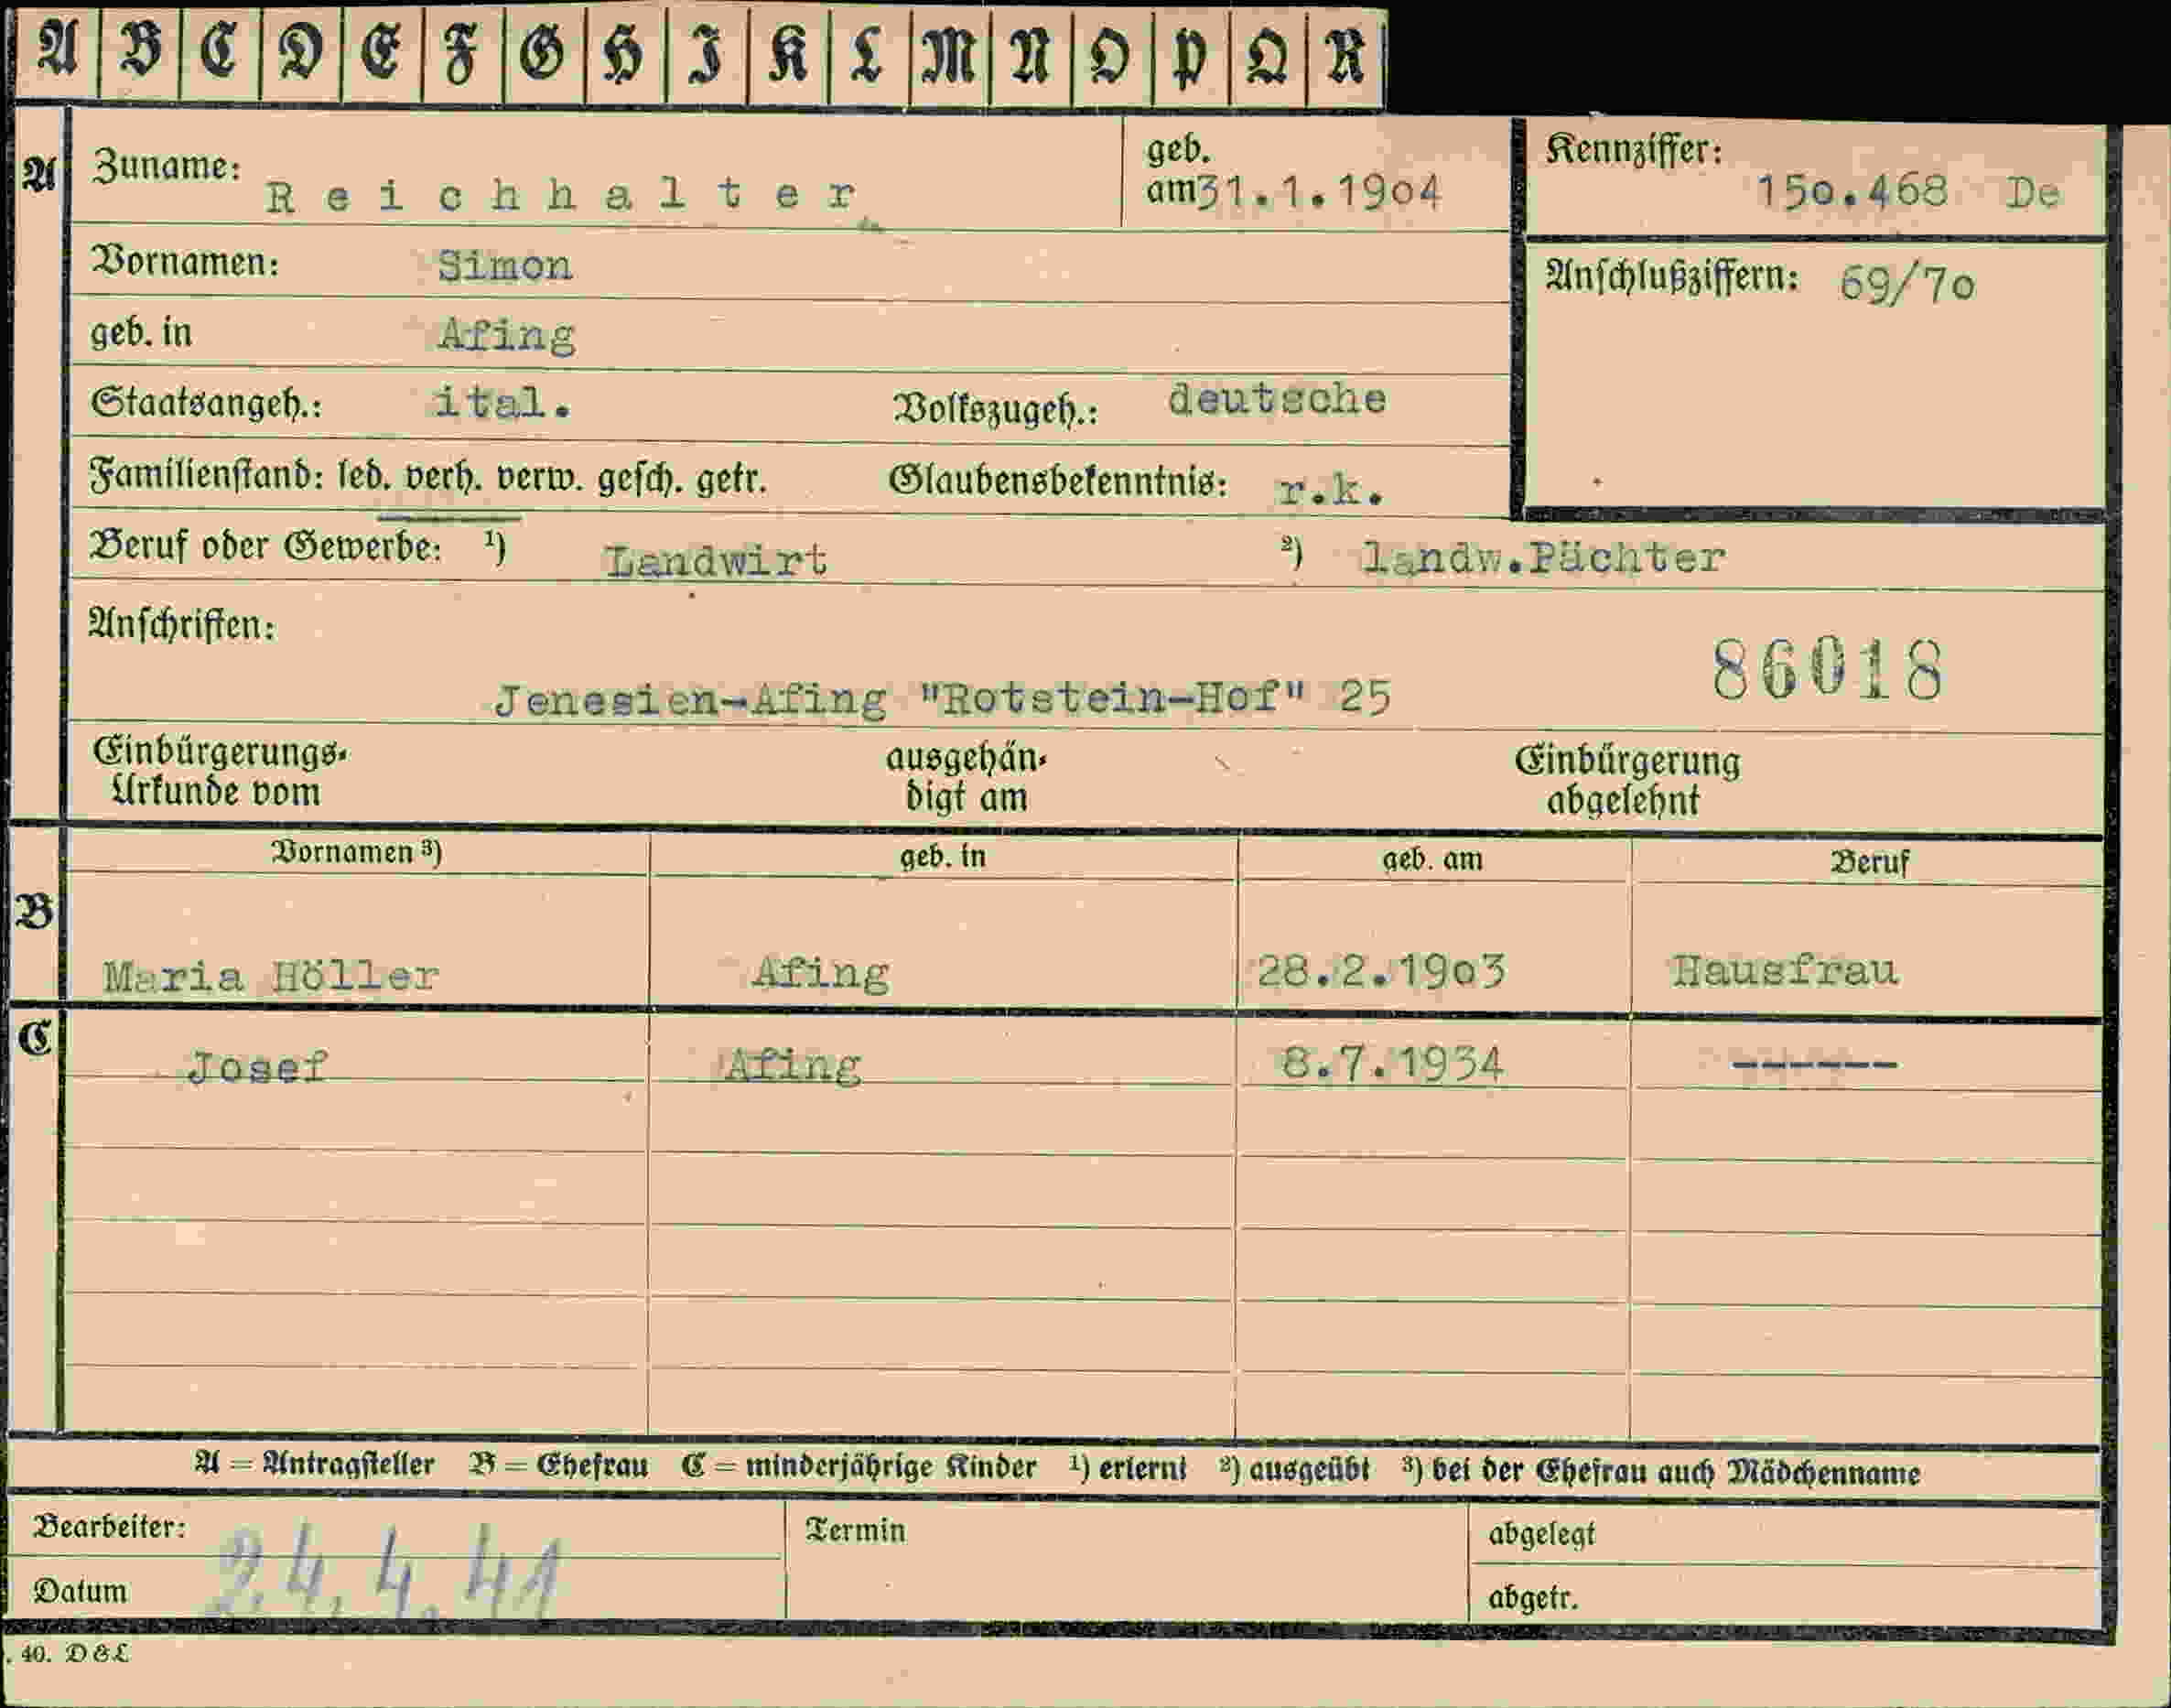 A B C D E F G H I K L M N O P Q R
A Zuname: Reichhalter geb. am 31.1.1904 Kennziffer: 150.468 De
Vornamen: Simon Anschlußziffern: 69/70
geb. in Afing
Staatsangeh.: ital. Volkszugeh.: deutsche
Familienstand: led. verh. verw. gesch. getr. Glaubensbekenntnis: r.k.
Beruf oder Gewerbe: ¹) Landwirt ²) landw.Pächter
Anschriften:
86018
Jenesien-Afing "Rotstein-Hof" 25
Einbürgerungs- ausgehän- Einbürgerung
Urkunde vom digt am abgelehnt
Vornamen ³) geb. in geb. am Beruf
B
Maria Höller Afing 28.2.1903 Hausfrau
C
Josef Afing 8.7.1934 ------
A = Antragsteller B = Ehefrau C = minderjährige Kinder ¹) erlernt ²) ausgeübt ³) bei der Ehefrau auch Mädchenname
Bearbeiter: Termin abgelegt
24.4.41
Datum abgetr.
. 40. D & L